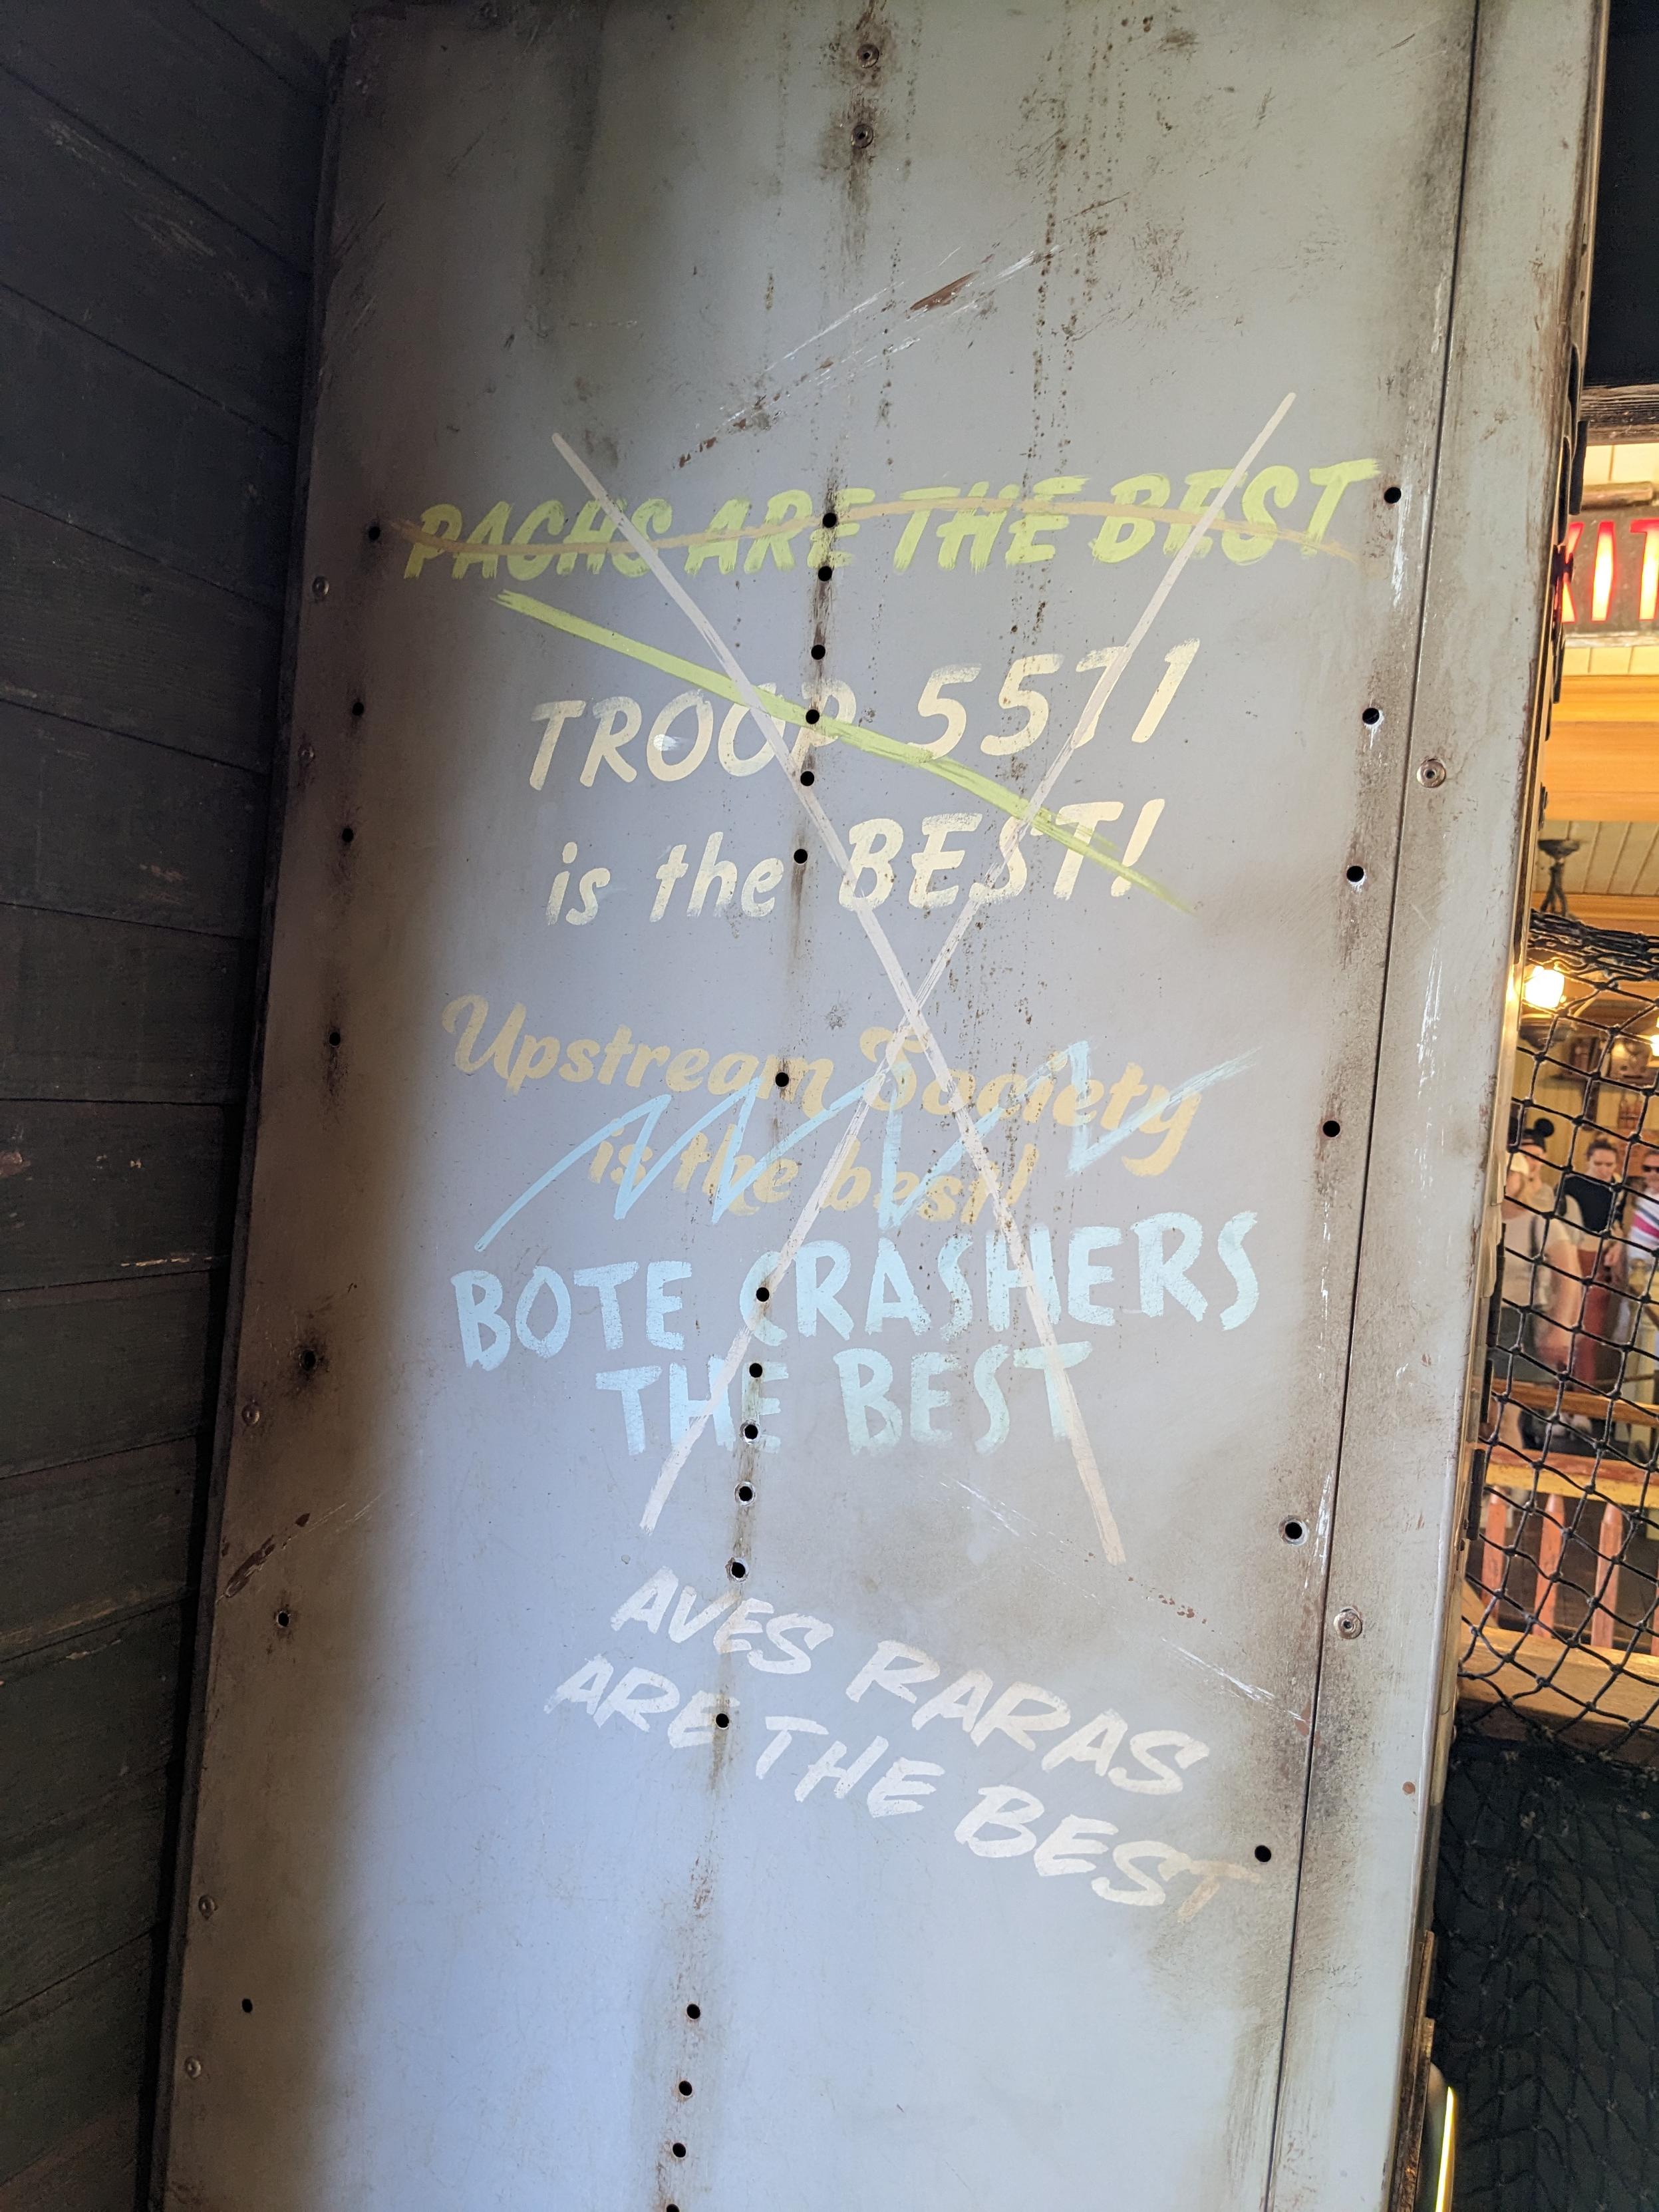 PACHS ARE THE BEST
TROOP 5571
is the BEST!
Upstream Society
is the best!
BOTE CRASHERS
THE BEST
AVES RARAS
ARE THE BEST
XIT